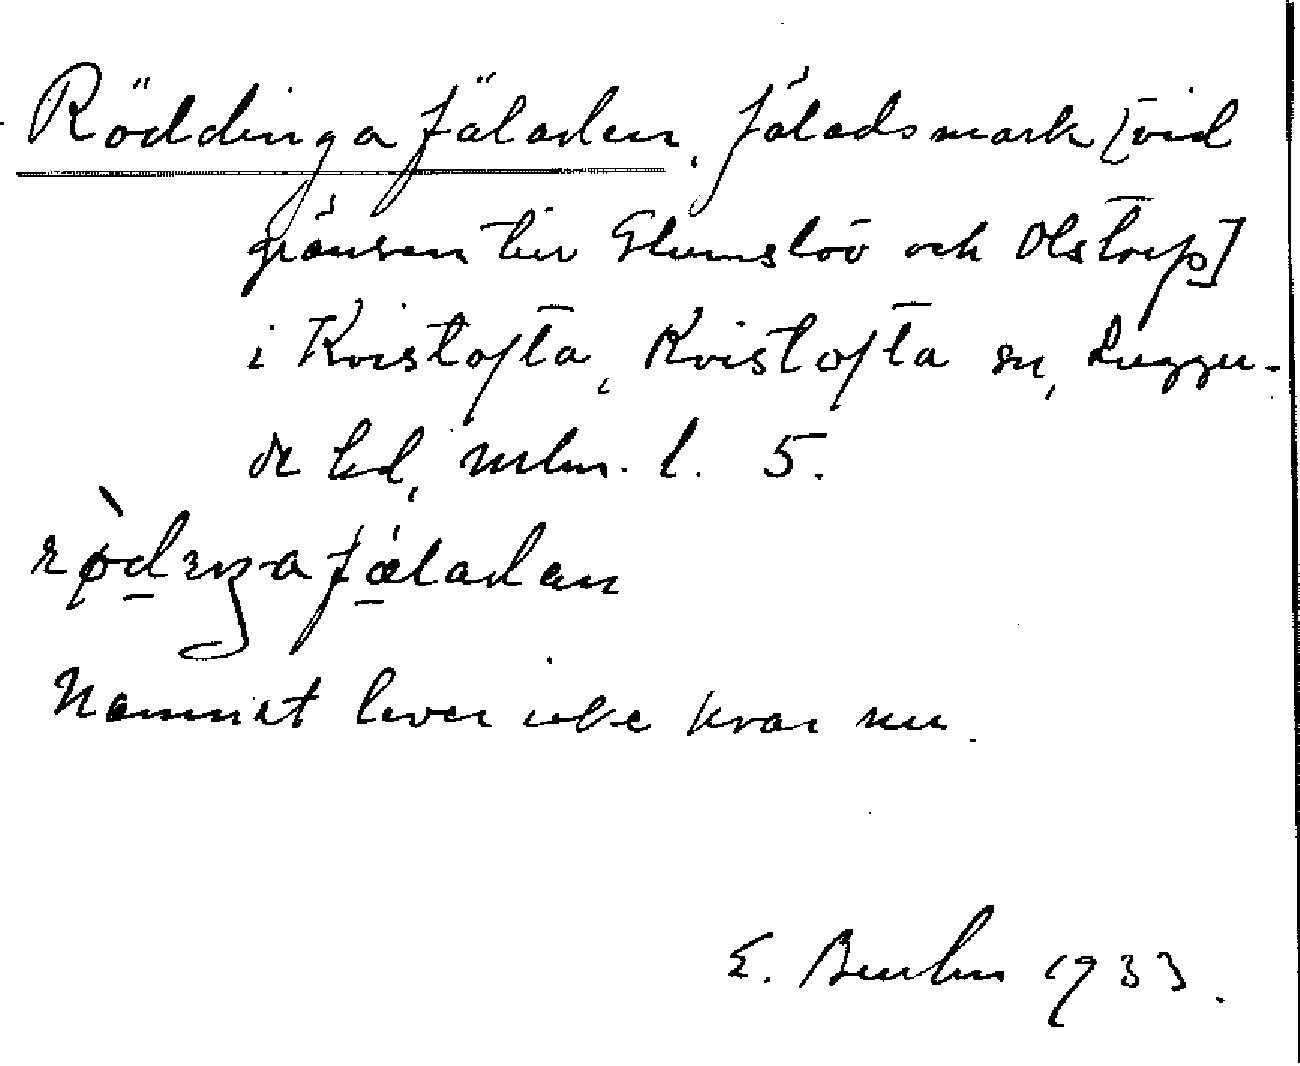 Röddinga fäladen, fäladsmark [vid
gränsen till Glumslöv och Olstorp]
i Kvistofta, Kvistofta sn, Luggu-
de hd, Mlm. l. 5.
rø̀dıŋa fǽladan
Namnet lever icke kvar nu.
E. 1933.